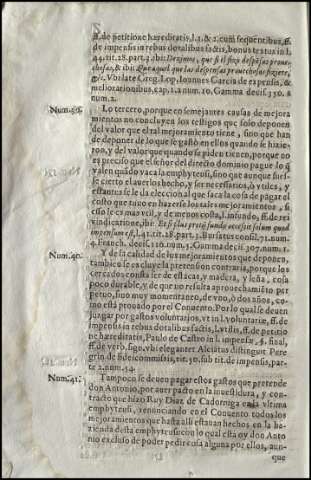 ff. de petitione hæreditatis, l. 1. & 2. cum sequentibus, ff.
de impensis in rebus dotalibus factis, bonus textus in l.
44. tit. 28. part. 3. ibi:
gle, Vbi late Greg. Lop. Ioannes Garcia de expensis, &
meliorationibus, cap. 1. n. 10. Gamma decis. 350. &
num. 2.
Num. 39.
Lo tercero, porque en semejantes causas de mejora
mientos no concluyen los testigos que solo deponen
del valor que el tal mejoramiento tiene, sino que han
de deponer de lo que se gastò en ellos quando se hizie-
ron, y del valor que quando se piden tienen, porque no
es preciso que el señor del directo dominio pague lo q
valen quãdo vaca la emphyteusi, sino que aunque fues-
se cierto el auerlos hecho, y ser necesarios, ò vtiles, y
estantes se le da eleccion al que saca la cosa de pagar el
costo que tuuo en hazerse los tales mejoramientos, si
esse le es mas vtil, y de menos costa, l. in fundo, ff. de rei
vindicatione, ibi:
impensum est, l. 41. tit. 28. part. 3. Bursatus consil. 71. num.
4. Franch. decis. 110. num. 3. Gamma decis. 307. num. 1.
Num. 40.
Y de la calidad de los mejoramientos que deponen,
tambiẽ se excluye la pretension contraria, porque los
cercados consta ser de estacas, y madera, y leña, cosa
poco durable, y de que no resulta aprouechamiẽto per
petuo, sino muy momentaneo, de vno, ò dos años, co-
mo està prouado por el Conuento. Por lo qual se deuẽ
juzgar por gastos voluntarios, vt in l. Voluntariæ, ff. de
impensis in rebus dotalibus factis, l. vtilis, ff. de petitio
ne hæreditatis, Paulo de Castro in l. impensæ, §. final,
ff. de verb. sign. vbi eleganter Alciatus distinguit. Pere
grin de fideicommissis, art. 50. sub tit. de impensis, par-
te 2. num. 54.
Num. 41.
Tampoco se deuen pagar estos gastos que pretende
don Antonio, por auer pacto en la inuestidura, y con-
tracto que hizo Ruy Diez de Cadorniga en la vltima
emphyteusi, renunciando en el Conuento todos los
mejoramientos que hasta alli estauan hechos en la ha-
zienda desta emphyteusi con lo qual està oy don Anto
nio excluso de poder pedir cosa alguna por ellos, aun-
que